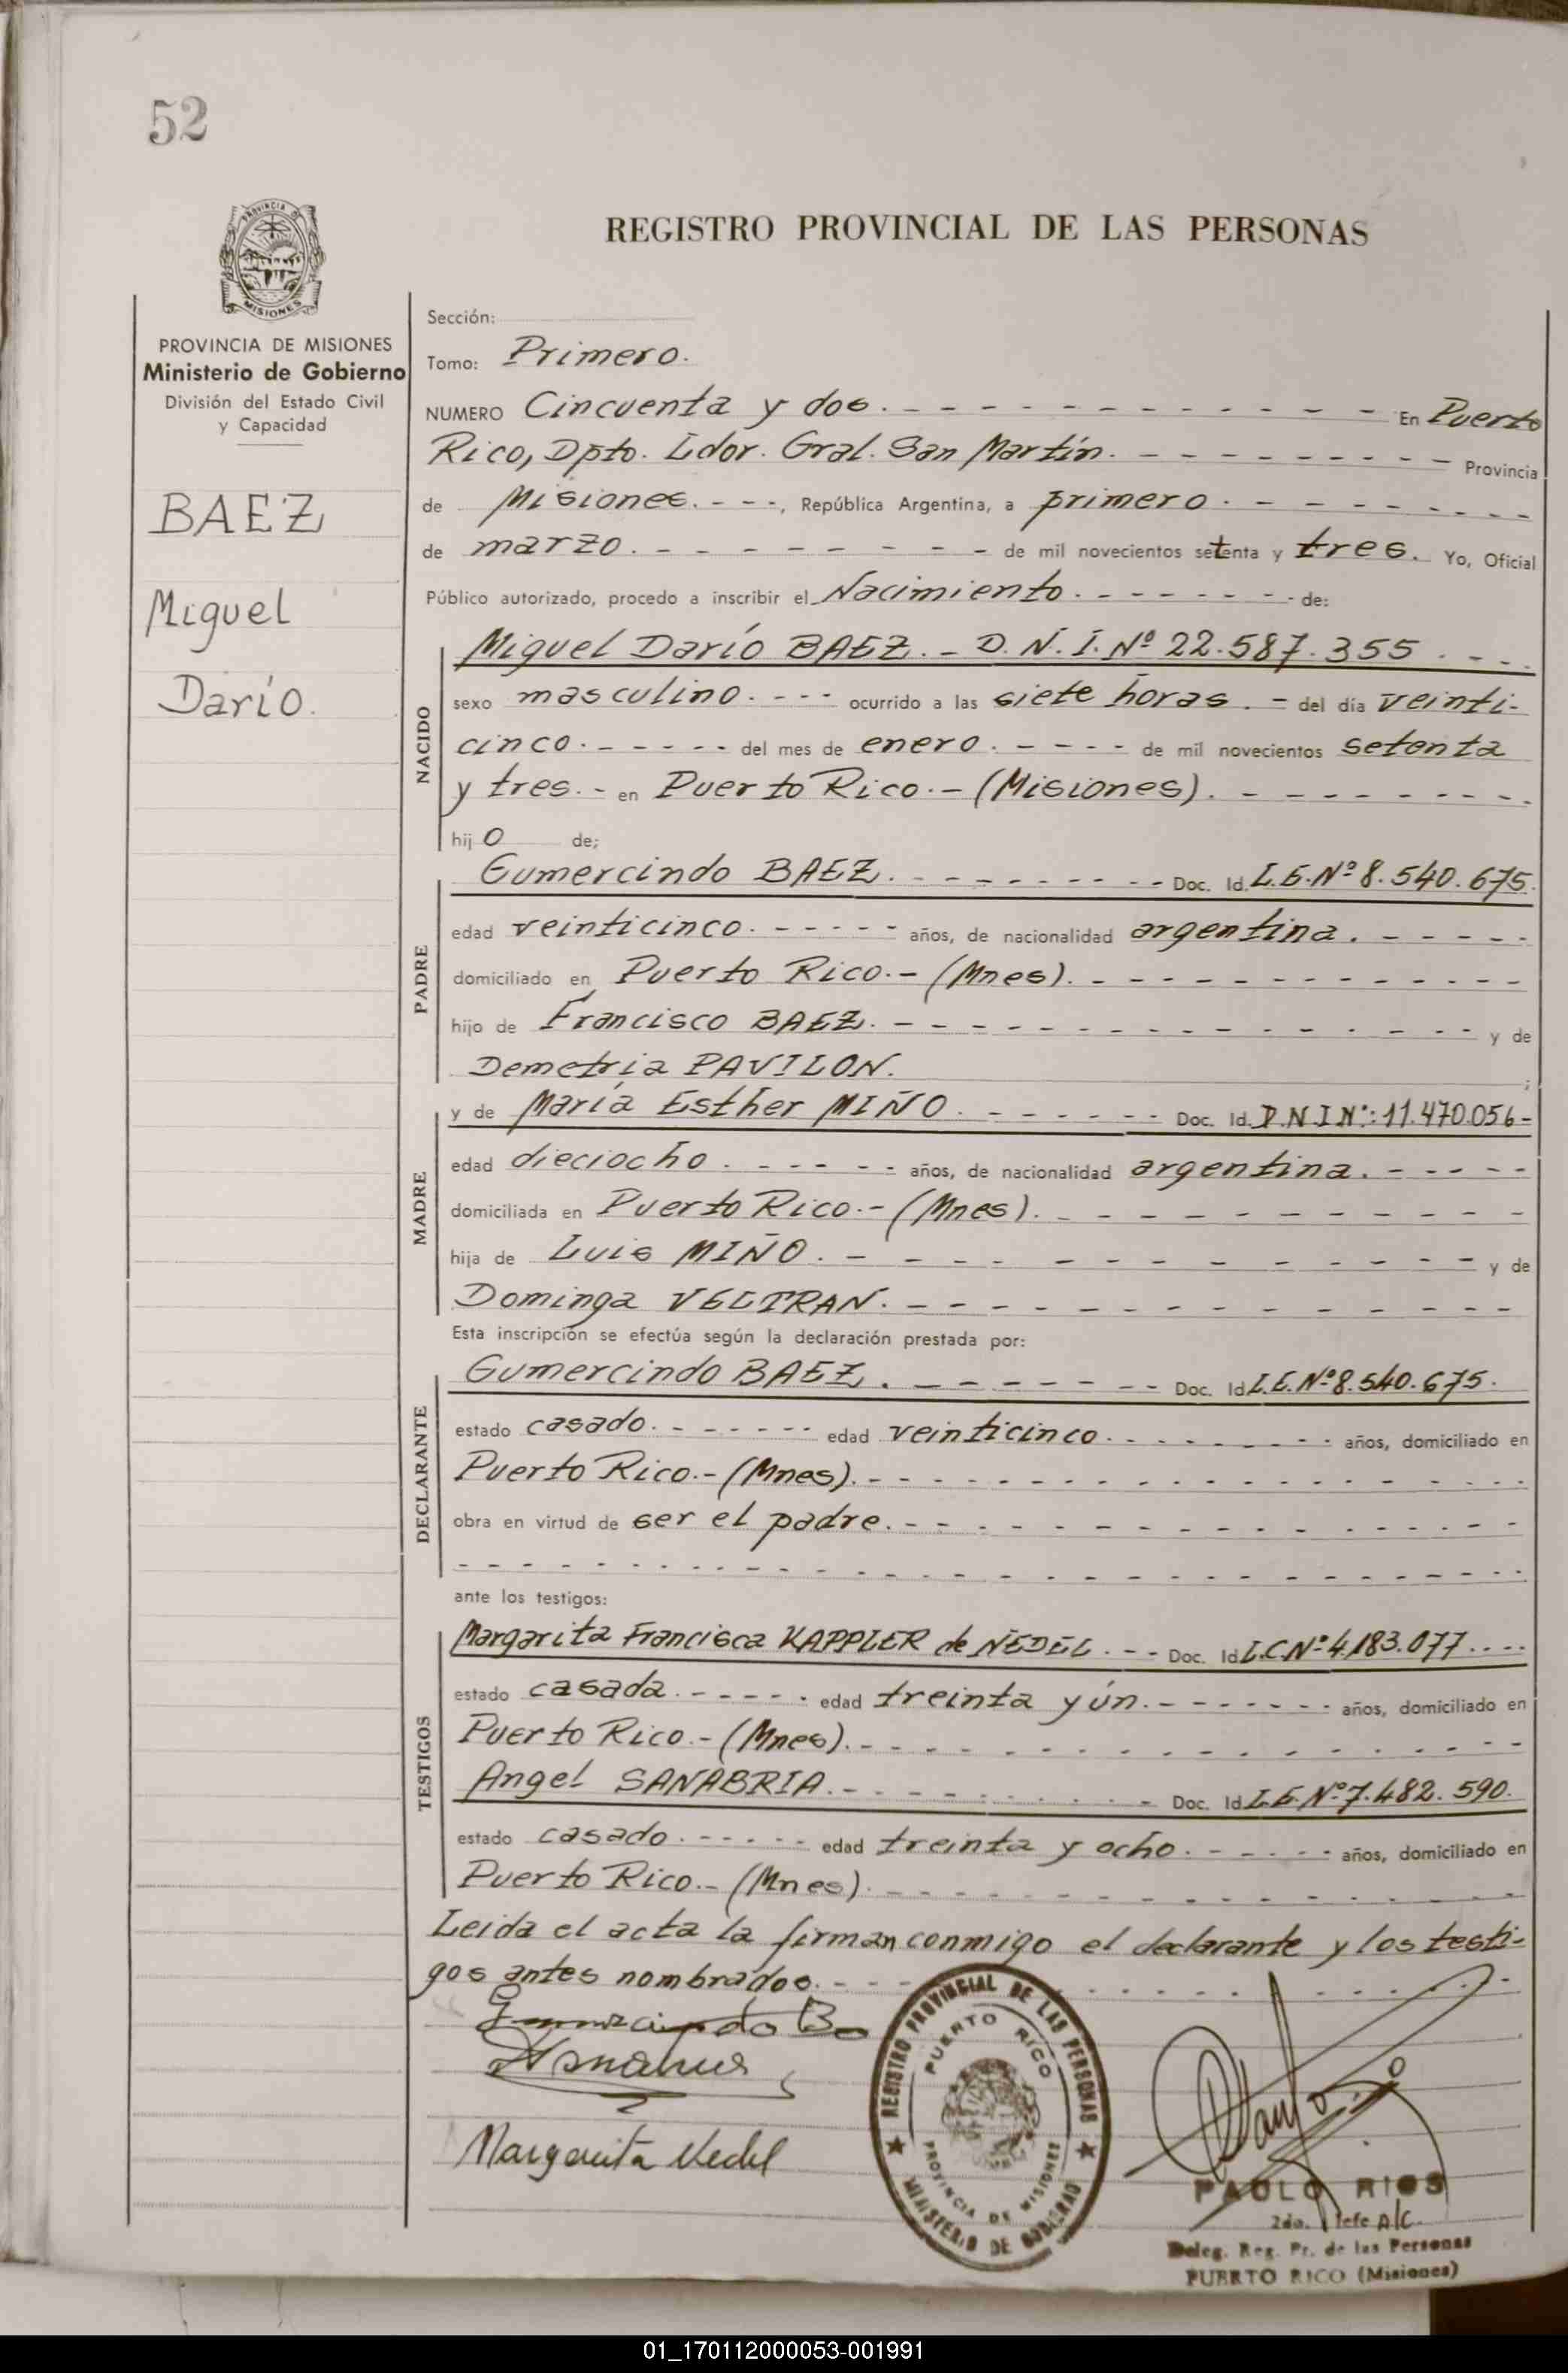 52
REGISTRO PROVINCIAL DE LAS PERSONAS
PROVINCIA DE
MISIONES
PROVINCIA DE MISIONES
Ministerio de Gobierno
División del Estado Civil
y Capacidad
BAEZ
Miguel
Darío.
Sección:
Tomo: Primero.
NUMERO Cincuenta y dos. - - - - - - - - - - - En Puerto
Rico, Dpto. Ldor. Gral. San Martín. - - - - - - - - - Provincia
de Misiones. - - -, República Argentina, a primero. - - - - - - - -
de marzo. - - - - - - - - - de mil novecientos setenta y tres. Yo, Oficial
Público autorizado, procedo a inscribir el Nacimiento. - - - - - - - de:
NACIDO
Miguel Darío BAEZ. - D. N. I. Nº 22.587.355. - - -
sexo masculino. - - - ocurrido a las siete horas. - del día veinti-
cinco. - - - - - del mes de enero. - - - - de mil novecientos setenta
y tres. - en Puerto Rico. - (Misiones). - - - - - - - - -
hij o de;
PADRE
Gumercindo BAEZ. - - - - - - - - - Doc. Id. L.E. Nº 8.540.675.
edad veinticinco. - - - - - años, de nacionalidad argentina. - - - - -
domiciliado en Puerto Rico. - (Mnes). - - - - - - - - - - - -
hijo de Francisco BAEZ. - - - - - - - - - - - - - y de
Demetria PAVILON. ;
MADRE
y de María Esther MIÑO. - - - - - - - Doc. Id. D.N.I Nº: 11.470.056-
edad dieciocho. - - - - - - años, de nacionalidad argentina. - - - - -
domiciliada en Puerto Rico. - (Mnes). - - - - - - - - - -
hija de Luis MIÑO. - - - - - - - - - - - - - y de
Dominga VELTRAN. - - - - - - - - - - - - - -
Esta inscripción se efectúa según la declaración prestada por:
DECLARANTE
Gumercindo BAEZ. - - - - - - - - Doc. Id L.E. Nº 8.540.675.
estado casado. - - - - - - edad veinticinco. - - - - - - - - años, domiciliado en
Puerto Rico. - (Mnes). - - - - - - - - - - - - - - - - -
obra en virtud de ser el padre. - - - - - - - - - - - - - -
- - - - - - - - - - - - - - - - - - - - - - - - - -
ante los testigos:
TESTIGOS
Margarita Francisca KAPPLER de NEDEL. - - - Doc. Id L.C. Nº 4.183.077. ...
estado casada. - - - - - edad treinta y ún. - - - - - - - años, domiciliado en
Puerto Rico. - (Mnes). - - - - - - - - - - - - - - - - -
Angel SANABRIA. - - - - - - - - - - - Doc. Id L.E. Nº 7.482.590.
estado casado. - - - - - - edad treinta y ocho. - - - - - - años, domiciliado en
Puerto Rico. - (Mnes). - - - - - - - - - - - - - - -
Leida el acta la firman conmigo el declarante y los testi-
gos antes nombrados. - - - - - - - - - - - -
Margarita Nedel
REGISTRO PROVINCIAL DE LAS PERSONAS
PUERTO RICO
PROVINCIA DE MISIONES
MINISTERIO DE GOBIERNO
PAOLO RIOS
2do. Jefe A/C.
Deleg. Reg. Pr. de las Personas
PUERTO RICO (Misiones)
01_170112000053-001991